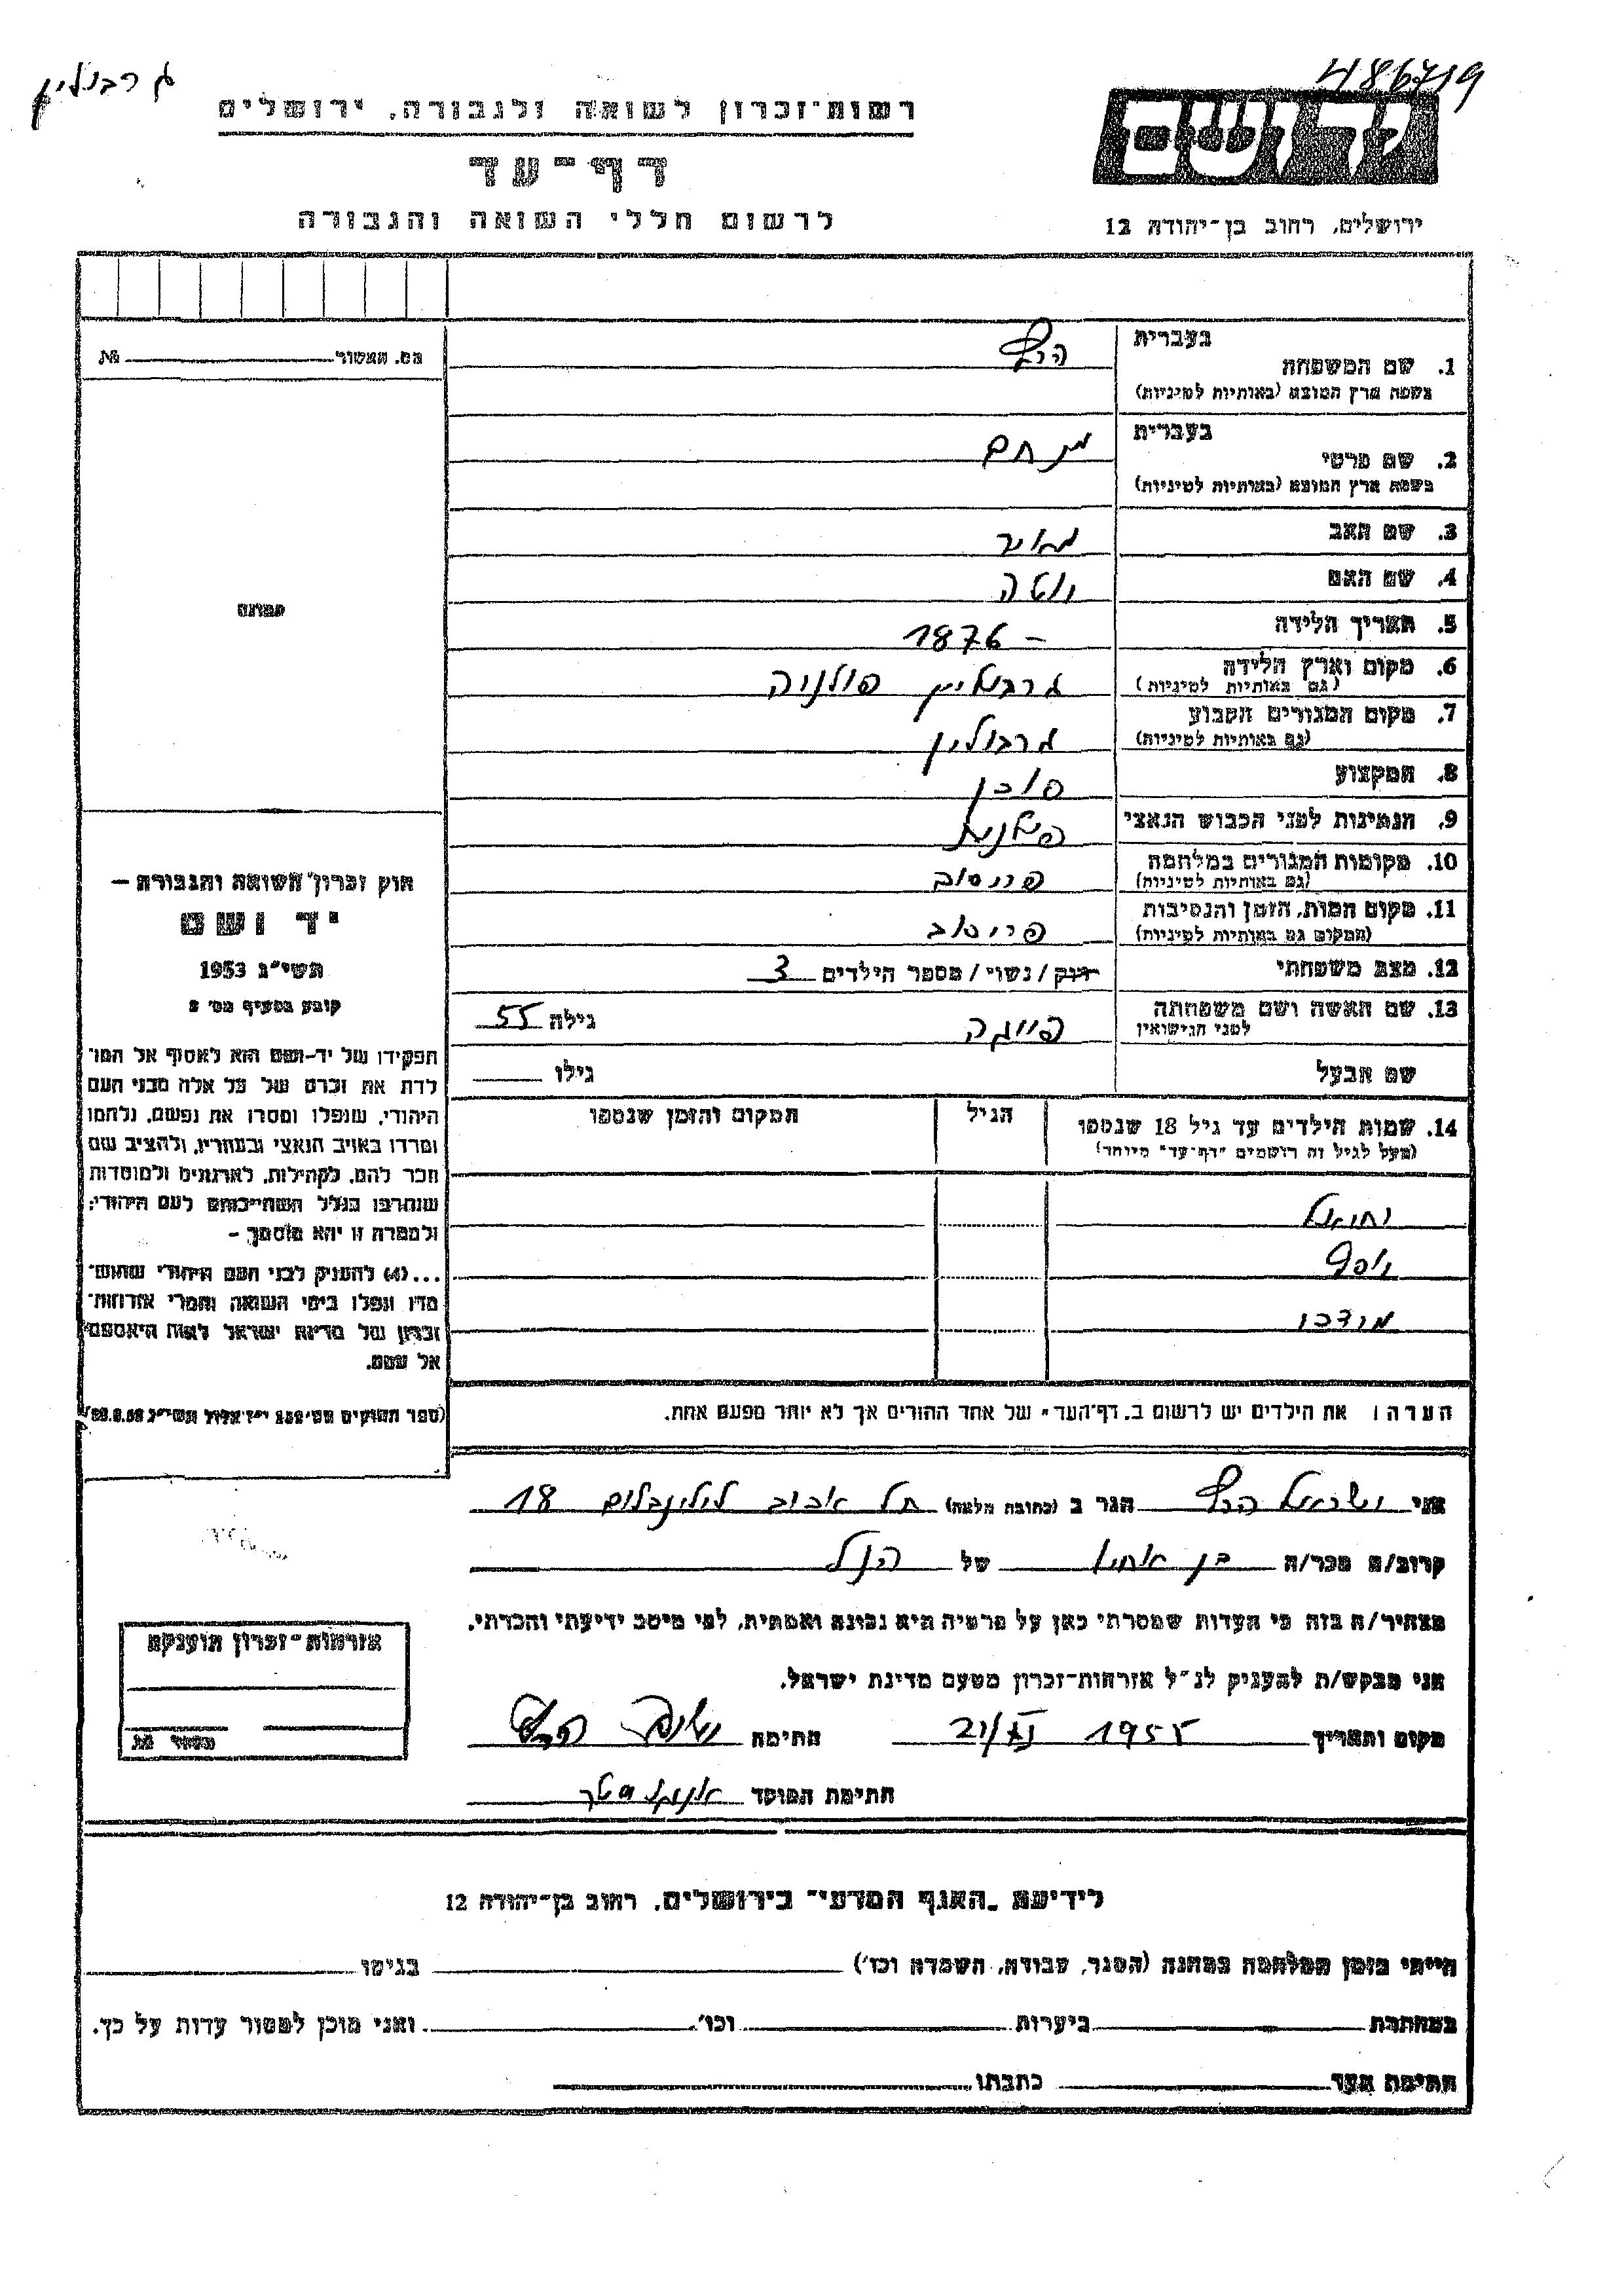 486719
ג רבולין
יד ושם
רשות־זכרון לשואה ולגבורה, ירושלים
דף־עד
לרשום חללי השואה והגבורה
ירושלים, רחוב בן־יהודה 12
מס. האשור № 
תמונה
חוק זכרון השואה והגבורה —
יד ושם
תשי״ג 1953
קובע בסעיף מס׳ 2
תפקידו של יד-ושם הוא לאסוף אל המו־
לדת את זכרם של כל אלה מבני העם
היהודי, שנפלו ומסרו את נפשם, נלחמו
ומרדו באויב הנאצי ובעוזריו, ולהציב שם
וזכר להם, לקהילות, לארגונים ולמוסדות
שנחרבו בגלל השתייכותם לעם היהודי;
ולמטרה זו יהא מוסמך —
...(4) להעניק לבני העם היהודי שהוש־
מדו ונפלו בימי השואה והמרי אזרחות־
זכרון של מדינת ישראל לאות היאספם
אל עמם.
(ספר החוקים מס׳ 132 י״ז אלול תשי״ג 28.8.53)
1. שם המשפחה בעברית
בשפת ארץ המוצא (באותיות לטיניות)
2. שם פרטי בעברית מנחם
בשפת ארץ המוצא (באותיות לטיניות)
3. שם האב מאיר
4. שם האם יוטה
5. תאריך הלידה – 1876
6. מקום וארץ הלידה גרבולין פולניה
(גם באותיות לטיניות)
7. מקום המגורים הקבוע גרבולין
(גם באותיות לטיניות)
8. המקצוע סוכן
9. הנתינות לפני הכבוש הנאצי פולנית
10. מקומות המגורים במלחמה פריסוב
(גם באותיות לטיניות)
11. מקום המות, הזמן והנסיבות פריסוב
(המקום גם באותיות לטיניות)
12. מצב משפחתי רווק / נשוי / מספר הילדים 3
13. שם האשה ושם משפחתה פייגה גילה 55
לפני הנישואין
שם הבעל גילו
14. שמות הילדים עד גיל 18 שנספו הגיל המקום והזמן שנספו
(מעל לגיל זה רושמים ״דף־עד״ מיוחד)
יחיאל
יוסף
מרדכי
הערה: את הילדים יש לרשום ב„דף־העד״ של אחד ההורים אך לא יותר מפעם אחת.
אני ישראל הגר ב (כתובת מלאה) תל אביב לילינבלום 18
קרוב/ה מכר/ה בן אחיו של הנ״ל
מצהיר/ה בזה כי העדות שמסרתי כאן על פרטיה היא נכונה ואמתית, לפי מיטב ידיעתי והכרתי.
אני מבקש/ת להעניק לנ״ל אזרחות־זכרון מטעם מדינת ישראל.
מקום ותאריך 21/XI 1955 חתימה
חתימת הפוקד
אזרחות־זכרון הוענקה
אשור №
לידיעת „האגף המדעי״ בירושלים, רחוב בן־יהודה 12
הייתי בזמן המלחמה במחנה (הסגר, עבודה, השמדה וכו׳) בגיטו
במחתרת ביערות וכו׳ ואני מוכן למסור עדות על כך.
חתימת העד כתבתו